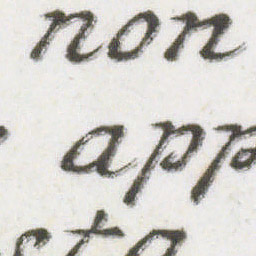 non
app
sta